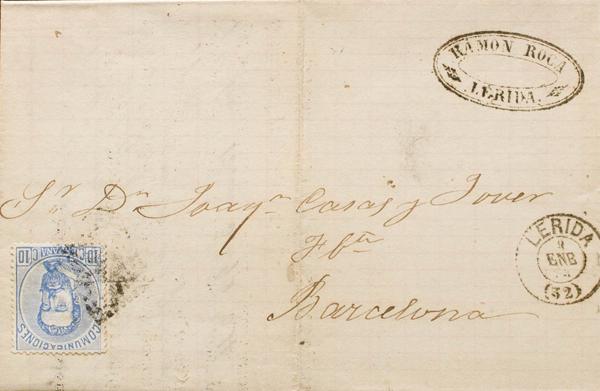 RAMON ROCA
LERIDA.
Sr Dn Joaqn Casas y Jover
Barcelona
LERIDA
ENB
(32)
COMUNICACIONES
10 C. 10